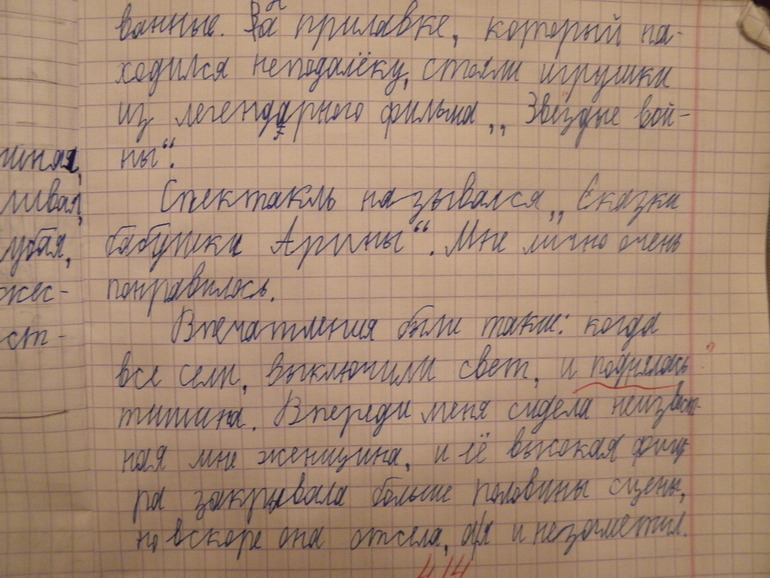 ванные. За прилавке, который на-
ходился неподалёку, стояли игрушки
из легендарного фильма „Звёздые вой-
ны“.
Спектакль назывался „Сказки
бабушки Арины“. Мне лично очень
понравилось.
Впечатления были такие: когда
все сели, выключили свет, и поднялась
тишина. Впереди меня сидела неизвест-
ная мне женщина, и её высокая фигу
ра закрывала больше половины сцены,
но вскоре она отсела, а я и не заметил.
4/4
ивая,
убая,
жес-
ст-